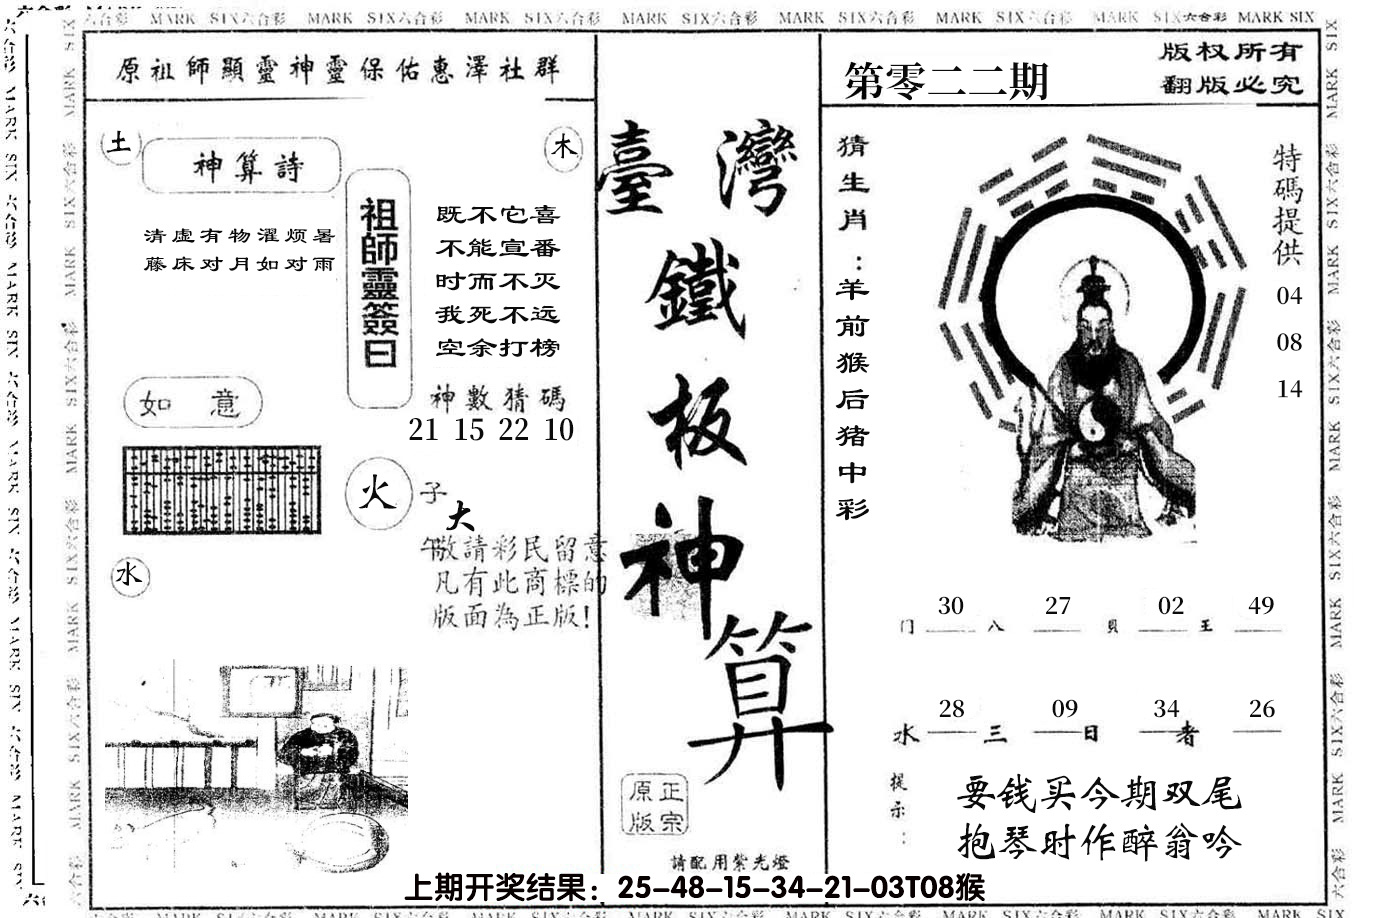 MARK SIX六合彩 MARK SIX六合彩 MARK SIX六合彩 MARK SIX六合彩 MARK SIX六合彩 MARK SIX六合彩 MARK SIX六合彩 MARK SIX
原祖師顯靈神靈保佑惠澤社群
土
神算詩
木
清虚有物濯烦暑
藤床对月如对雨
祖師靈簽曰
既不它喜
不能宣番
时而不灭
我死不远
空余打榜
神數猜碼
21 15 22 10
如 意
火
子
大
午
敬請彩民留意
凡有此商標的
版面為正版!
水
臺灣
鐵
板
神
算
正宗
原版
請配用紫光燈
第零二二期
版权所有
翻版必究
猜生肖:羊前猴后猪中彩
特碼提供
04
08
14
30 27 02 49
门 八 貝 王
28 09 34 26
水 三 日 者
提示:
要钱买今期双尾
抱琴时作醉翁吟
上期开奖结果：25-48-15-34-21-03T08猴